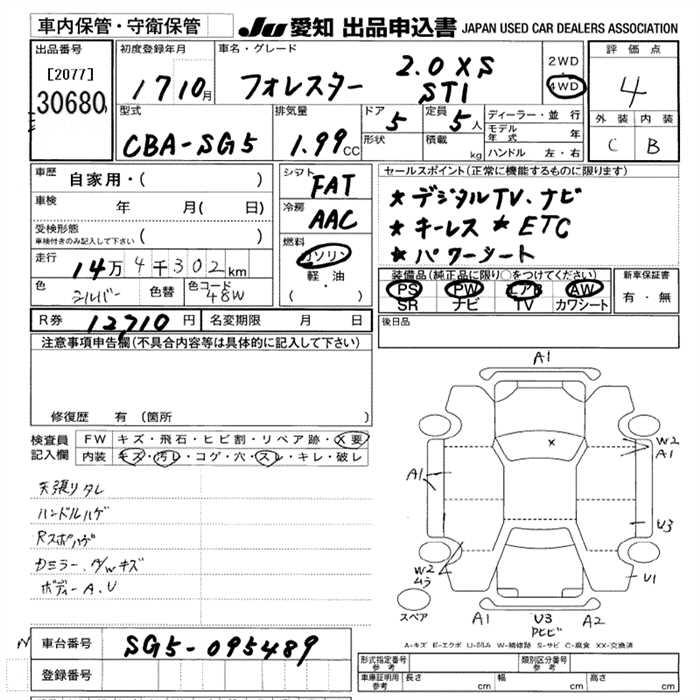 車内保管・守衛保管
JU 愛知 出品申込書 JAPAN USED CAR DEALERS ASSOCIATION
出品番号
[2077]
30680
初度登録年月
17 10月
車名・グレード
フォレスター 2.0XS STI
2WD
4WD
評価点
4
外装 内装
C B
型式
CBA-SG5
排気量
1.99 CC
ドア
5
形状
定員
5人
積載
kg
ディーラー・並行
モデル年式 年
ハンドル 左・右
車歴 自家用・( )
車検 年 月( 日)
受検形態
車検付きのみ記入して下さい ( )
走行 14万4千302km
色 シルバー 色替 色コード 48W
シフト
FAT
冷房
AAC
燃料
ガソリン
軽・油
( ・ )
セールスポイント(正常に機能するものに限ります)
★デジタルTV、ナビ
★キーレス ★ETC
★パワーシート
装備品(純正品に限り○をつけてください)
PS PW エアB AW
SR ナビ TV カワシート
新車保証書
有・無
R券 12710円 名変期限 月 日
後日品
注意事項申告欄(不具合内容等は具体的に記入して下さい)
修復歴 有(箇所
検査員記入欄
FW キズ・飛石・ヒビ割・リペア跡・X要
内装 キズ・汚レ・コゲ・穴・スレ・キレ・破レ
天張りタレ
ハンドルハゲ
Rスポハゲ
Dミラー、A/Wキズ
ボディーA、U
A1
X
W2
A1
A1
U3
W2
ムラ
U1
スペア
A1
U3
Pヒビ
A2
A-キズ E-エクボ U-凹み W-補修跡 S-サビ C-腐食 XX-交換済
車台番号 SG5-095489
登録番号
形式指定番号
参考
類別区分番号
参考
車庫証明用
参考
長さ cm 幅 cm 高さ cm